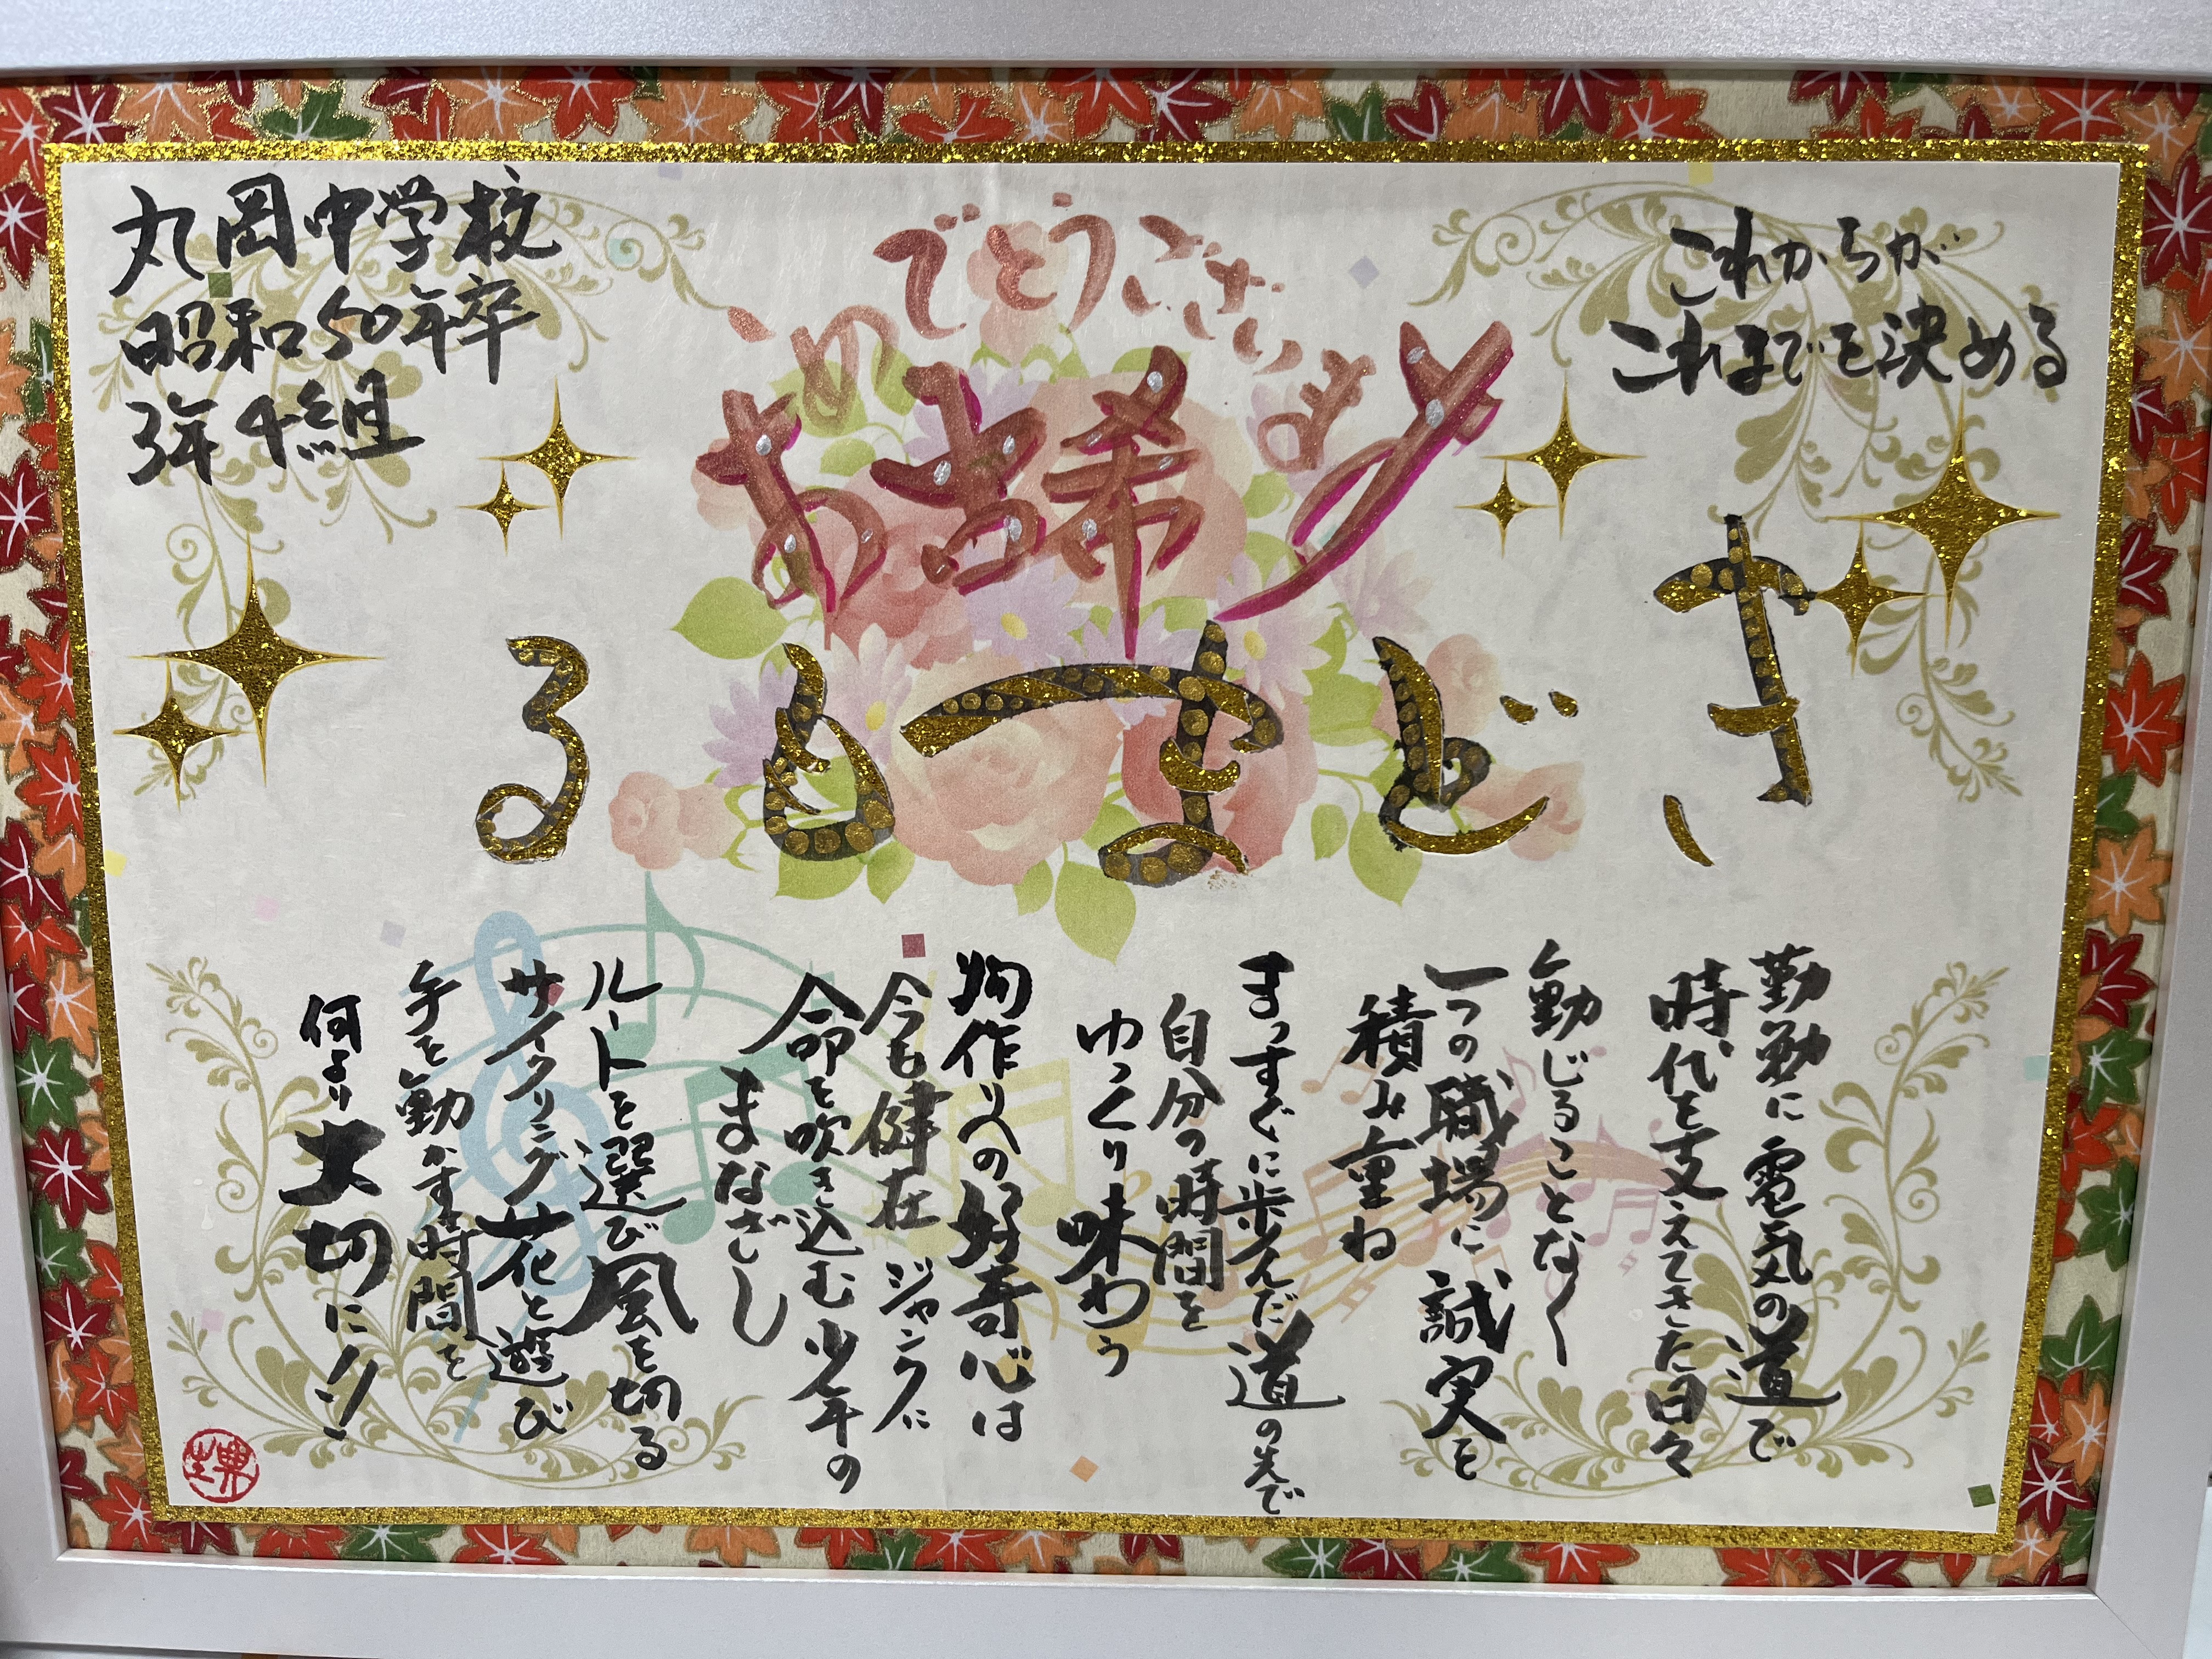 丸岡中学校
昭和50年卒
3年4組
おめでとうございます
古希
これからが
これまでを決める
きど まもる
勤勉に電気の道で
時代を支えてきた日々
動じることなく
一つの職場に誠実を
積み重ね
まっすぐに歩んだ道の先で
自分の時間を
ゆっくり味わう
物作りへの好奇心は
今も健在 ジャンクに
命を吹き込む少年の
まなざし
ルートを選び風を切る
サイクリング花と遊び
手を動かす時間を
何より大切に!!